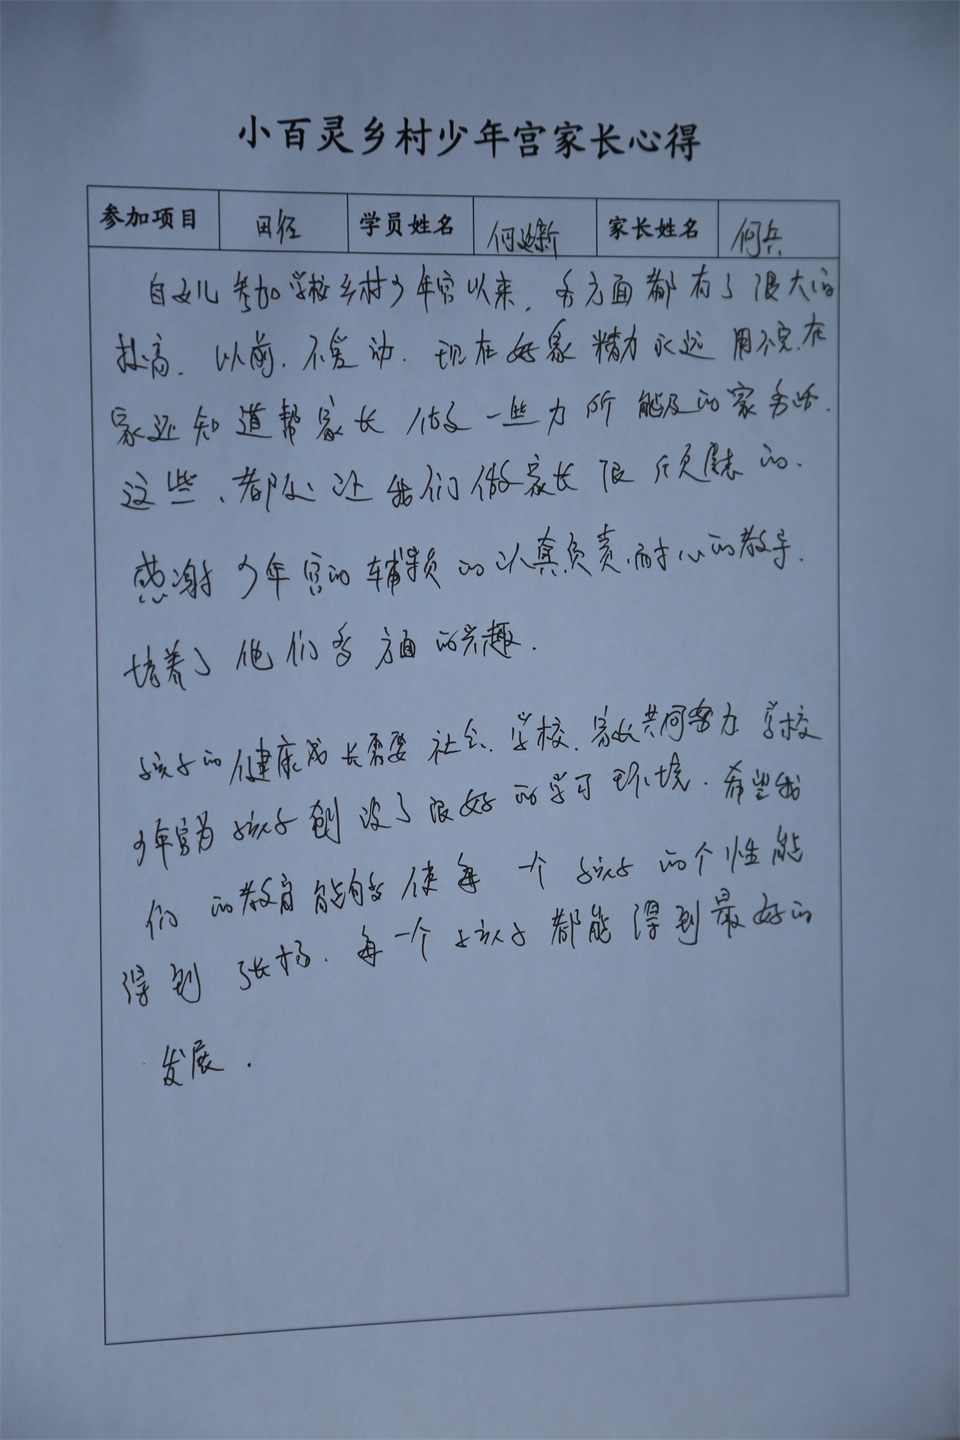 小百灵乡村少年宫家长心得
参加项目 田径 学员姓名 何新 家长姓名 何兵
自女儿参加学校乡村少年宫以来，各方面都有了很大的
提高．以前．不爱动．现在好象精力永远用不完．在
家还知道帮家长做一些力所能及的家务活．
这些、都让我们做家长很欣慰的．
感谢少年宫的辅导员的认真负责．耐心的教导．
培养了他们各方面的兴趣．
孩子的健康成长需要社会、学校、家长共同努力 学校
少年宫为孩子创设了很好的学习环境．希望我
们的教育能够使每一个孩子的个性能
得到张扬．每一个孩子都能得到最好的
发展．